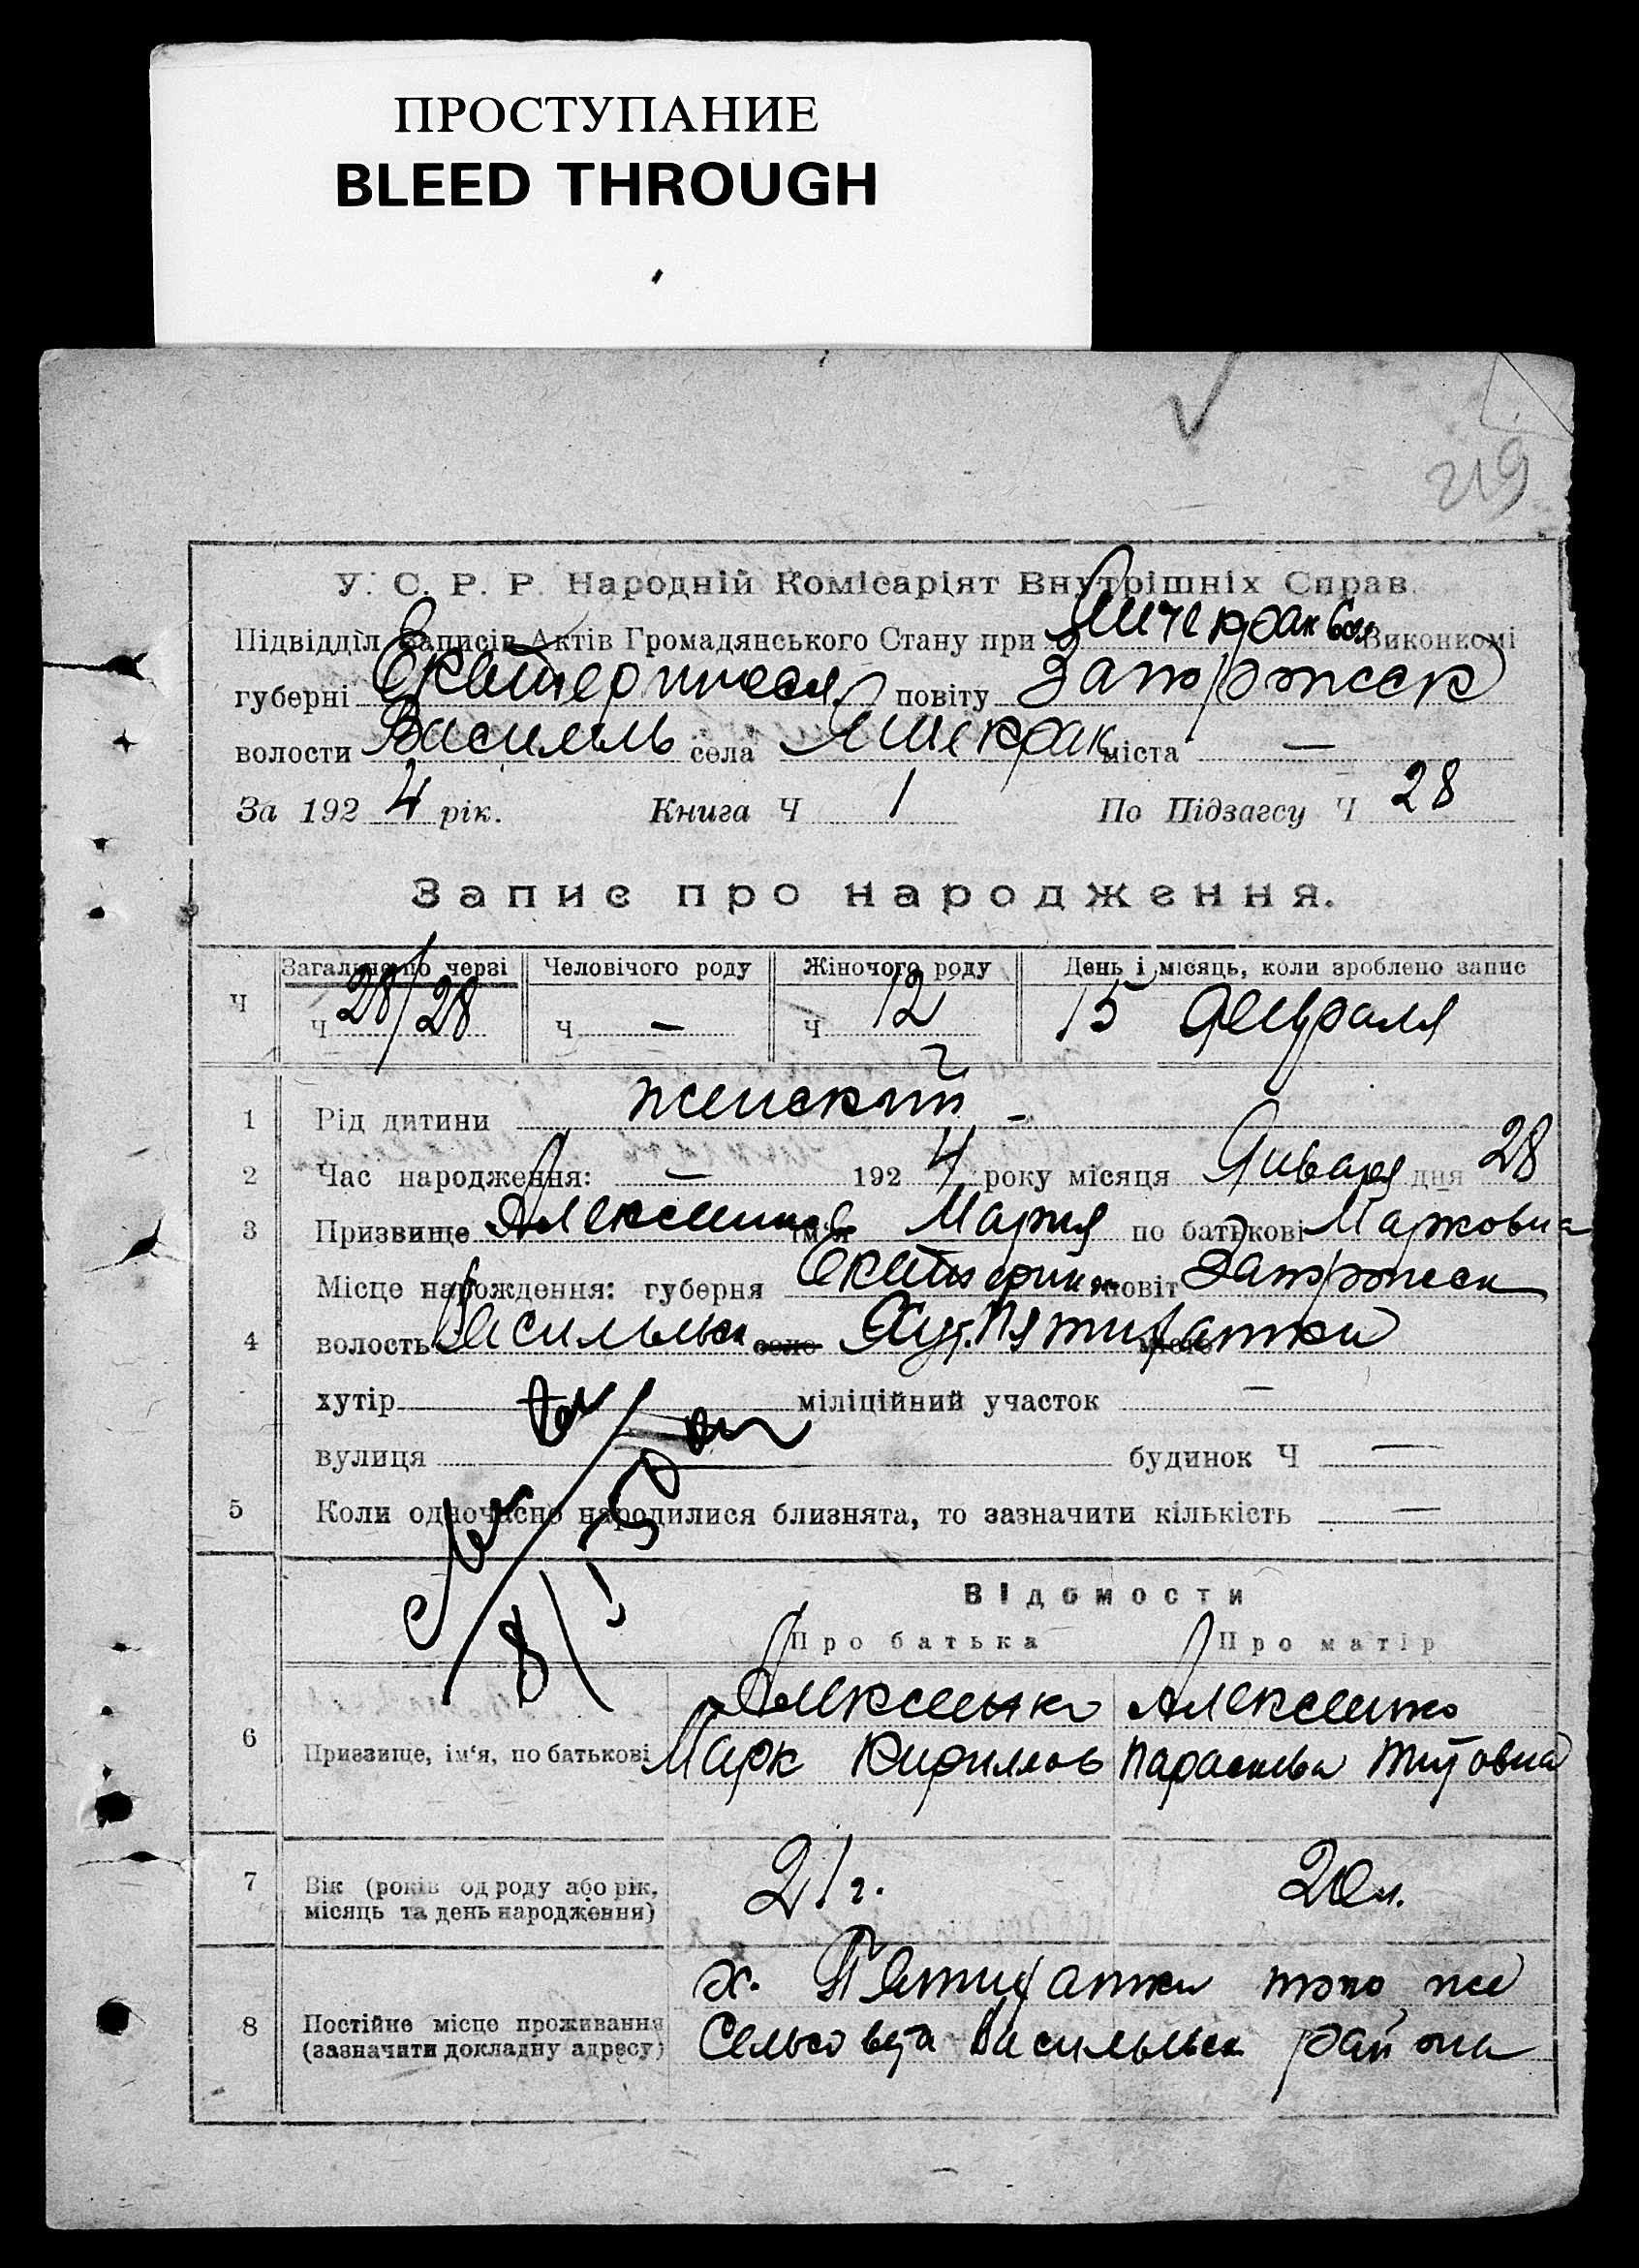 ПРОСТУПАНИЕ
BLEED THROUGH
219
У. С. Р. Р. Народній Комісаріят Внутрішніх Справ.
Підвідділ Записів Актів Громадянського Стану при Виконкомі
губерні Екатериносл повіту Запорожск
волости Василь села міста —
За 192 4 рік. Книга Ч 1 По Підзагсу Ч 28
Запис про народження.
Загально по черзі Человічого роду Жіночого роду День і місяць, коли зроблено запис
Ч Ч 28/28 Ч — Ч 12 15 Февраля
1 Рід дитини женский —
2 Час народження: — 192 4 року місяця Января дня 28
3 Призвище Алексеенко ім'я Мария по батькові Марковна
Місце народження: губерня Екатерин повіт Запорожск
4 волость Васильевск село Хут. Пятихатки місто
хутір міліційний участок —
вулиця будинок Ч —
5 Коли одночасно народилися близнята, то зазначити кількість —
Відомости
Про батька Про матір
Алексеенко Алексеенко
6 Призвище, ім'я, по батькові Марк Кириллов Параскева Титовна
7 Вік (років од роду або рік, 21 г. 20 л.
місяць та день народження)
х. Пятихатки того же
8 Постійне місце проживання
(зазначити докладну адресу) Сельсовета Васильевск района